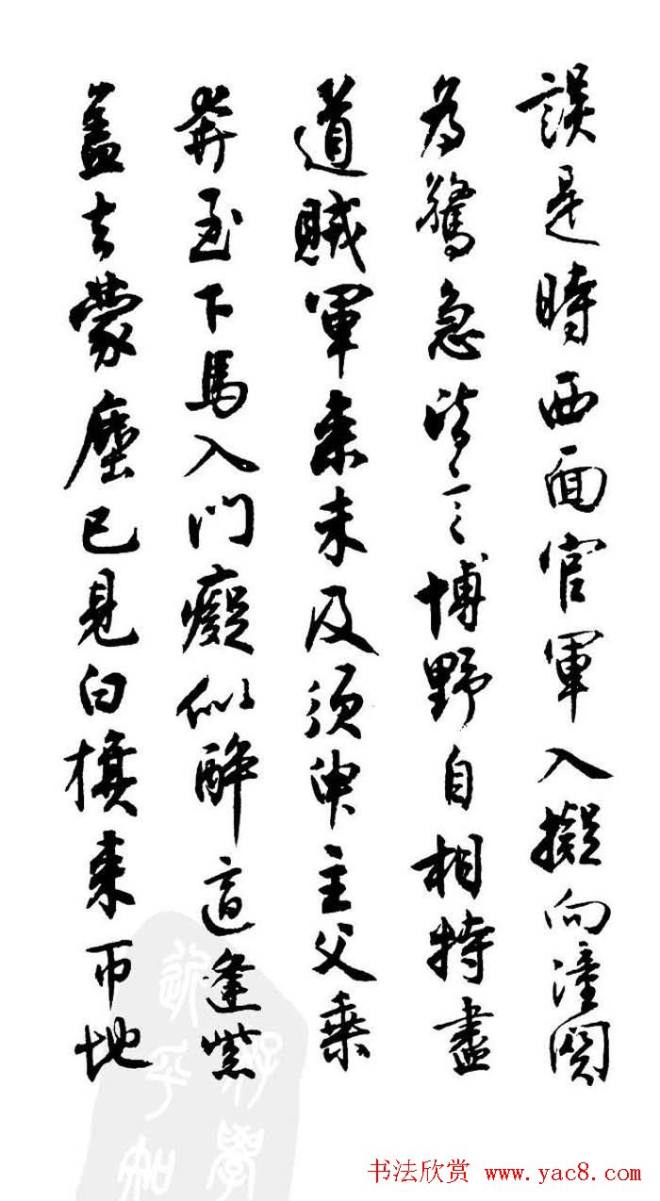 誤是時西面官軍入擬向潼關
為驚急皆言博野自相持盡
道賊軍來未及須臾主父乘
奔至下馬入門癡似醉適逢紫
蓋去蒙塵已見白旗來帀地
书法欣赏 www.yac8.com